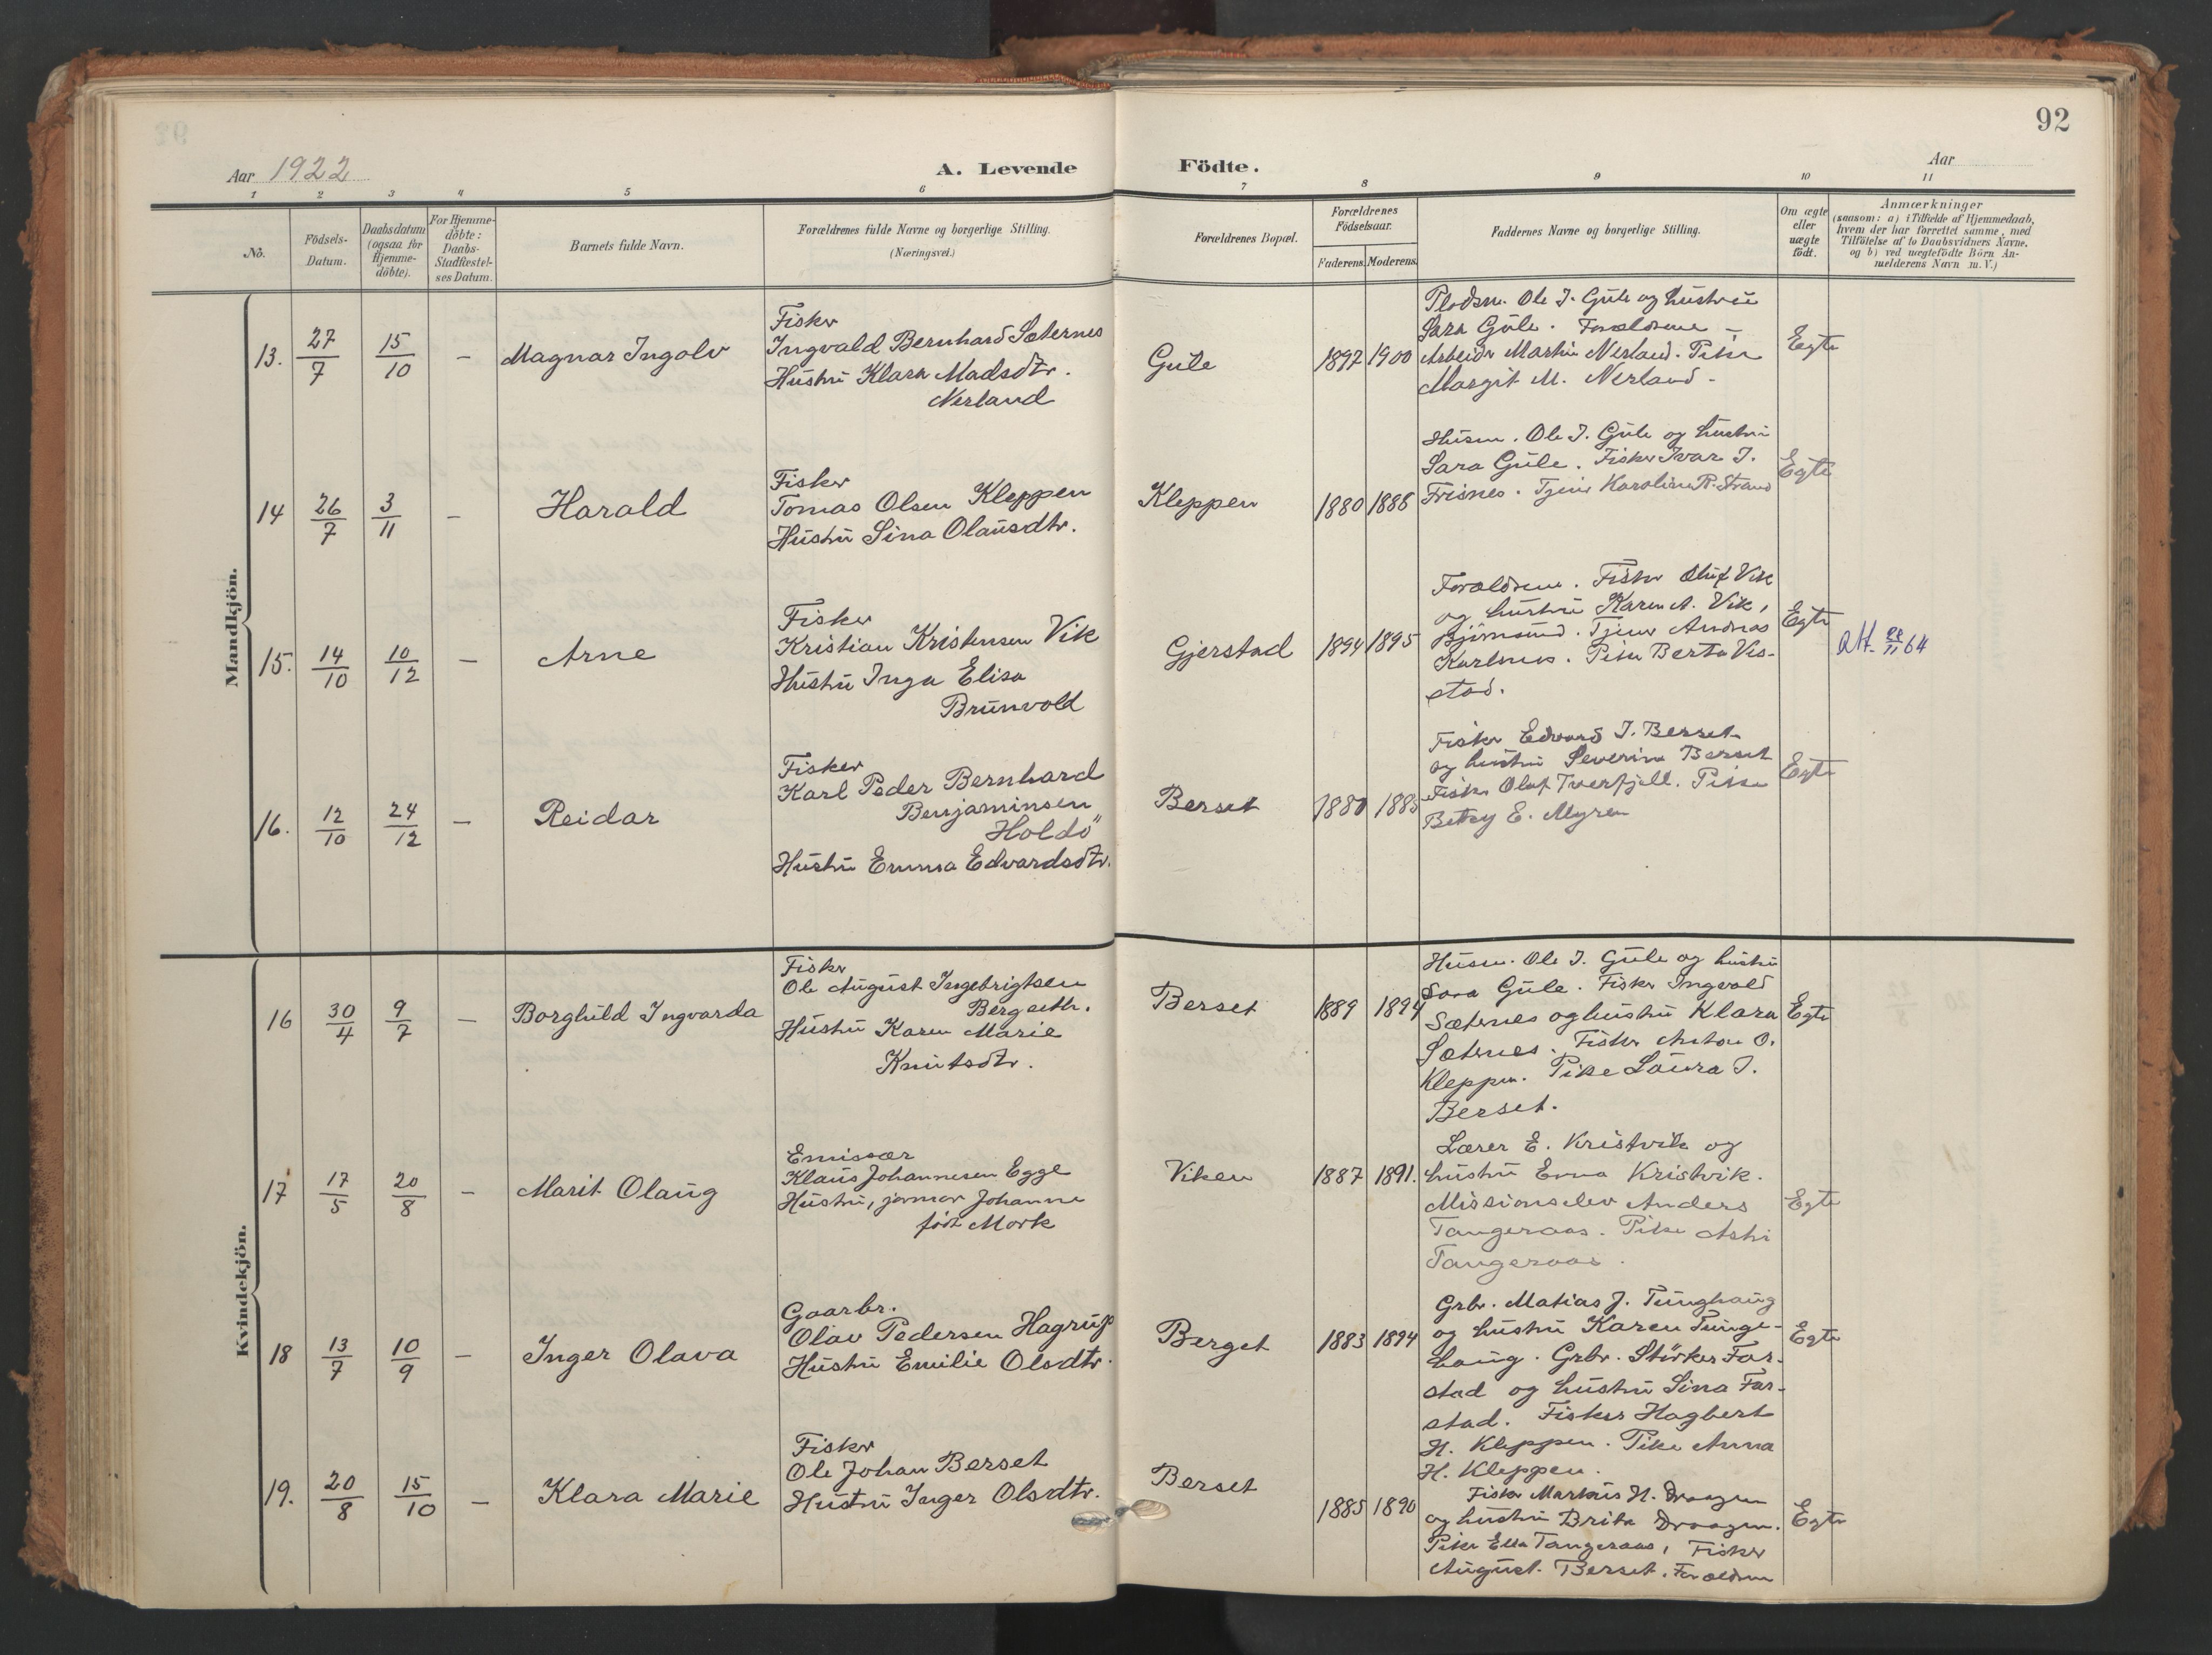 92
Aar 1922
A. Levende Födte.
Aar
1 2 3 4 5 6 7 8 9 10 11
No.
Födsels-
Datum.
Daabsdatum
(ogsaa for
Hjemme-
döbte).
For Hjemme-
döbte:
Daabs-
Stadfæstel-
ses Datum.
Barnets fulde Navn.
Forældrenes fulde Navne og borgerlige Stilling.
(Næringsvei.)
Forældrenes Bopæl.
Forældrenes
Födselsaar.
Faderens. Moderens.
Faddernes Navne og borgerlige Stilling.
Om ægte
eller
uægte
födt.
Anmærkninger
(saasom: a) i Tilfælde af Hjemmedaab,
hvem der har forrettet samme, med
Tilföielse af to Daabsvidners Navne,
og b) ved uægtefödte Börn An-
melderens Navn m. V.)
Mandkjön.
13. 27/7 15/10 – Magnar Ingolv
Fisker
Ingvald Bernhard Sæternes
Hustru Klara Madsdtr.
Nerland
Gule 1892 1900
Pladsm. Ole J. Gule og hustru
Sara Gule. Forældrene –
Arbeider Martin Nerland. Pike
Margit M. Nerland –
Egte
14 26/7 3/11 – Harald
Fisker
Tomas Olsen Kleppen
Hustru Sina Olausdtr.
Kleppen 1880 1888
Husm. Ole J. Gule og hustru
Sara Gule. Fisker Ivar J.
Frisnes. Tjener Karoline R. Strand
Egte
15. 14/10 10/12 – Arne
Fisker
Kristian Kristensen Vik
Hustru Inga Elisa
Brunvold
Gjerstad 1894 1895
Forældrene. Fisker Oluf Vik
og hustru Karen A. Vik,
Bjørnsund. Tjener Andreas
Karlsnes. Pike Berta Vis-
stad.
Egte
64
16. 12/10 24/12 – Reidar
Fisker
Karl Peder Bernhard
Benjaminsen
Holdö
Hustru Emma Edvardsdtr.
Berset 1880 1885
Fisker Edvard J. Berset
og hustru Severine Berset
Fisker Olaf Tverfjell. Pike
Betsy E. Myren
Egte
Kvindekjön.
16 30/4 9/7 – Borghild Ingvarda
Fisker
Ole August Ingebrigtsen
Bergseth.
Hustru Karen Marie
Knutsdtr.
Berset 1889 1894
Husm. Ole J. Gule og hustru
Sara Gule. Fisker Ingvald
Sæternes og hustru Klara
Sæternes. Fisker Anton O.
Kleppen. Pike Laura J.
Berset.
Egte
17 17/5 20/8 – Marit Olaug
Emissær
Klaus Johannesen Egge
Hustru, jormor Johanne
født Mork
Viken 1887 1891.
Lærer E. Kristvik og
hustru Erna Kristvik.
Missionselev Anders
Tangeraas. Pike Astri
Tangeraas.
Egte
18 13/7 10/9 – Inger Olava
Gaarbr.
Olav Pedersen Hagrup
Hustru Emilie Olsdtr.
Berget 1883 1894
Grbr. Matias J. Tunghaug
og hustru Karen Tunge-
haug. Grbr. Størker Far-
stad og hustru Sina Far-
stad. Fisker Hagbert
H. Kleppen. Pike Anna
H. Kleppen.
Egte
19. 20/8 15/10 – Klara Marie
Fisker
Ole Johan Berset
Hustru Inger Olsdtr.
Berset 1885 1890
Fisker Markus H. Draagen
og hustru Brita Draagen.
Pike Ella Tangeraas, Fisker
August Berset. Forældrene
Egte